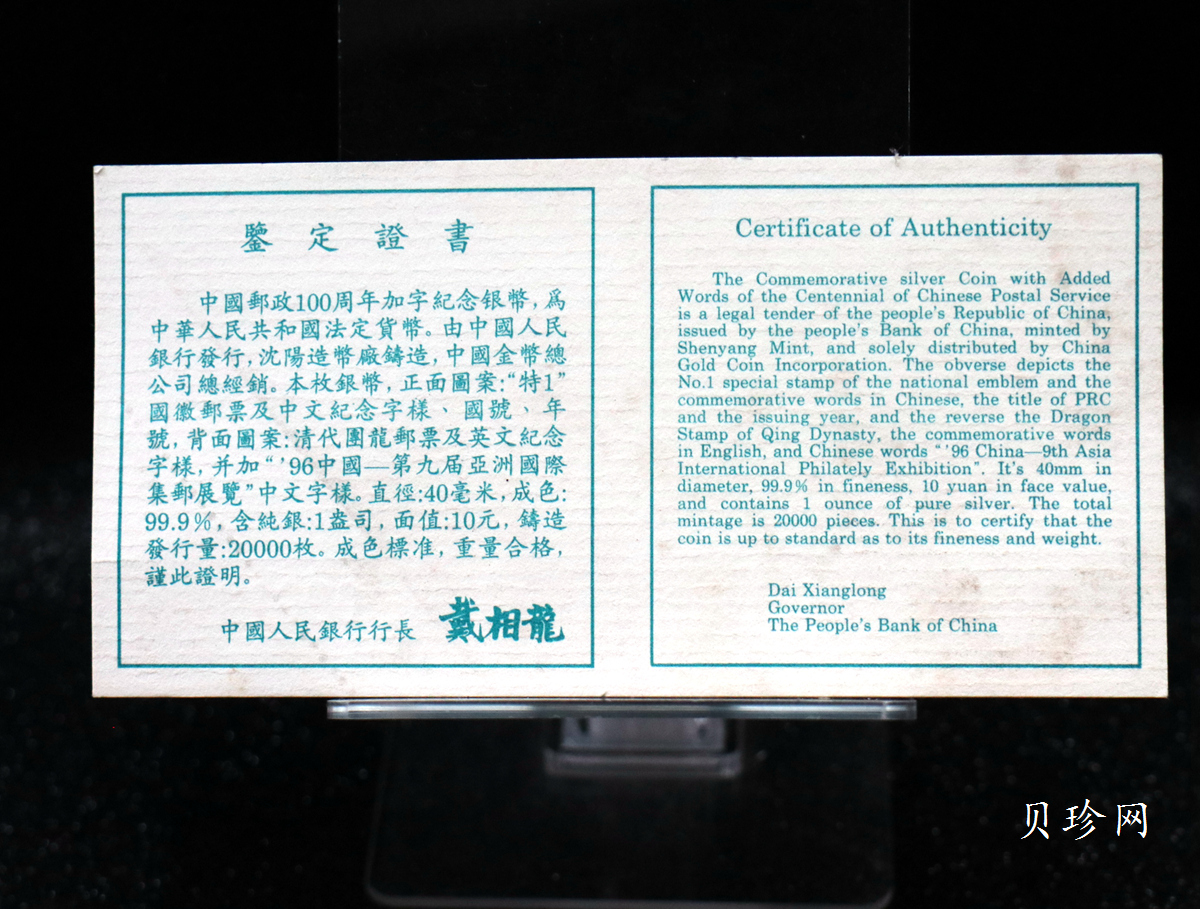 鑒定證書
中國郵政100周年加字紀念银幣，爲
中華人民共和國法定貨幣。由中國人民
銀行發行，沈陽造幣廠鑄造，中國金幣總
公司總經銷。本枚銀幣，正面圖案：“特1”
國徽郵票及中文紀念字樣、國號、年
號，背面圖案：清代團龍郵票及英文紀念
字樣，并加“’96中國—第九届亞洲國際
集郵展覽”中文字樣。直徑：40毫米，成色：
99.9%，含純銀：1盎司，面值：10元，鑄造
發行量：20000枚。成色標准，重量合格，
謹此證明。
中國人民銀行行長 戴相龍
Certificate of Authenticity
The Commemorative silver Coin with Added
Words of the Centennial of Chinese Postal Service
is a legal tender of the people's Republic of China,
issued by the people's Bank of China, minted by
Shenyang Mint, and solely distributed by China
Gold Coin Incorporation. The obverse depicts the
No.1 special stamp of the national emblem and the
commemorative words in Chinese, the title of PRC
and the issuing year, and the reverse the Dragon
Stamp of Qing Dynasty, the commemorative words
in English, and Chinese words "'96 China—9th Asia
International Philately Exhibition". It's 40mm in
diameter, 99.9% in fineness, 10 yuan in face value,
and contains 1 ounce of pure silver. The total
mintage is 20000 pieces. This is to certify that the
coin is up to standard as to its fineness and weight.
Dai Xianglong
Governor
The People's Bank of China
贝珍网